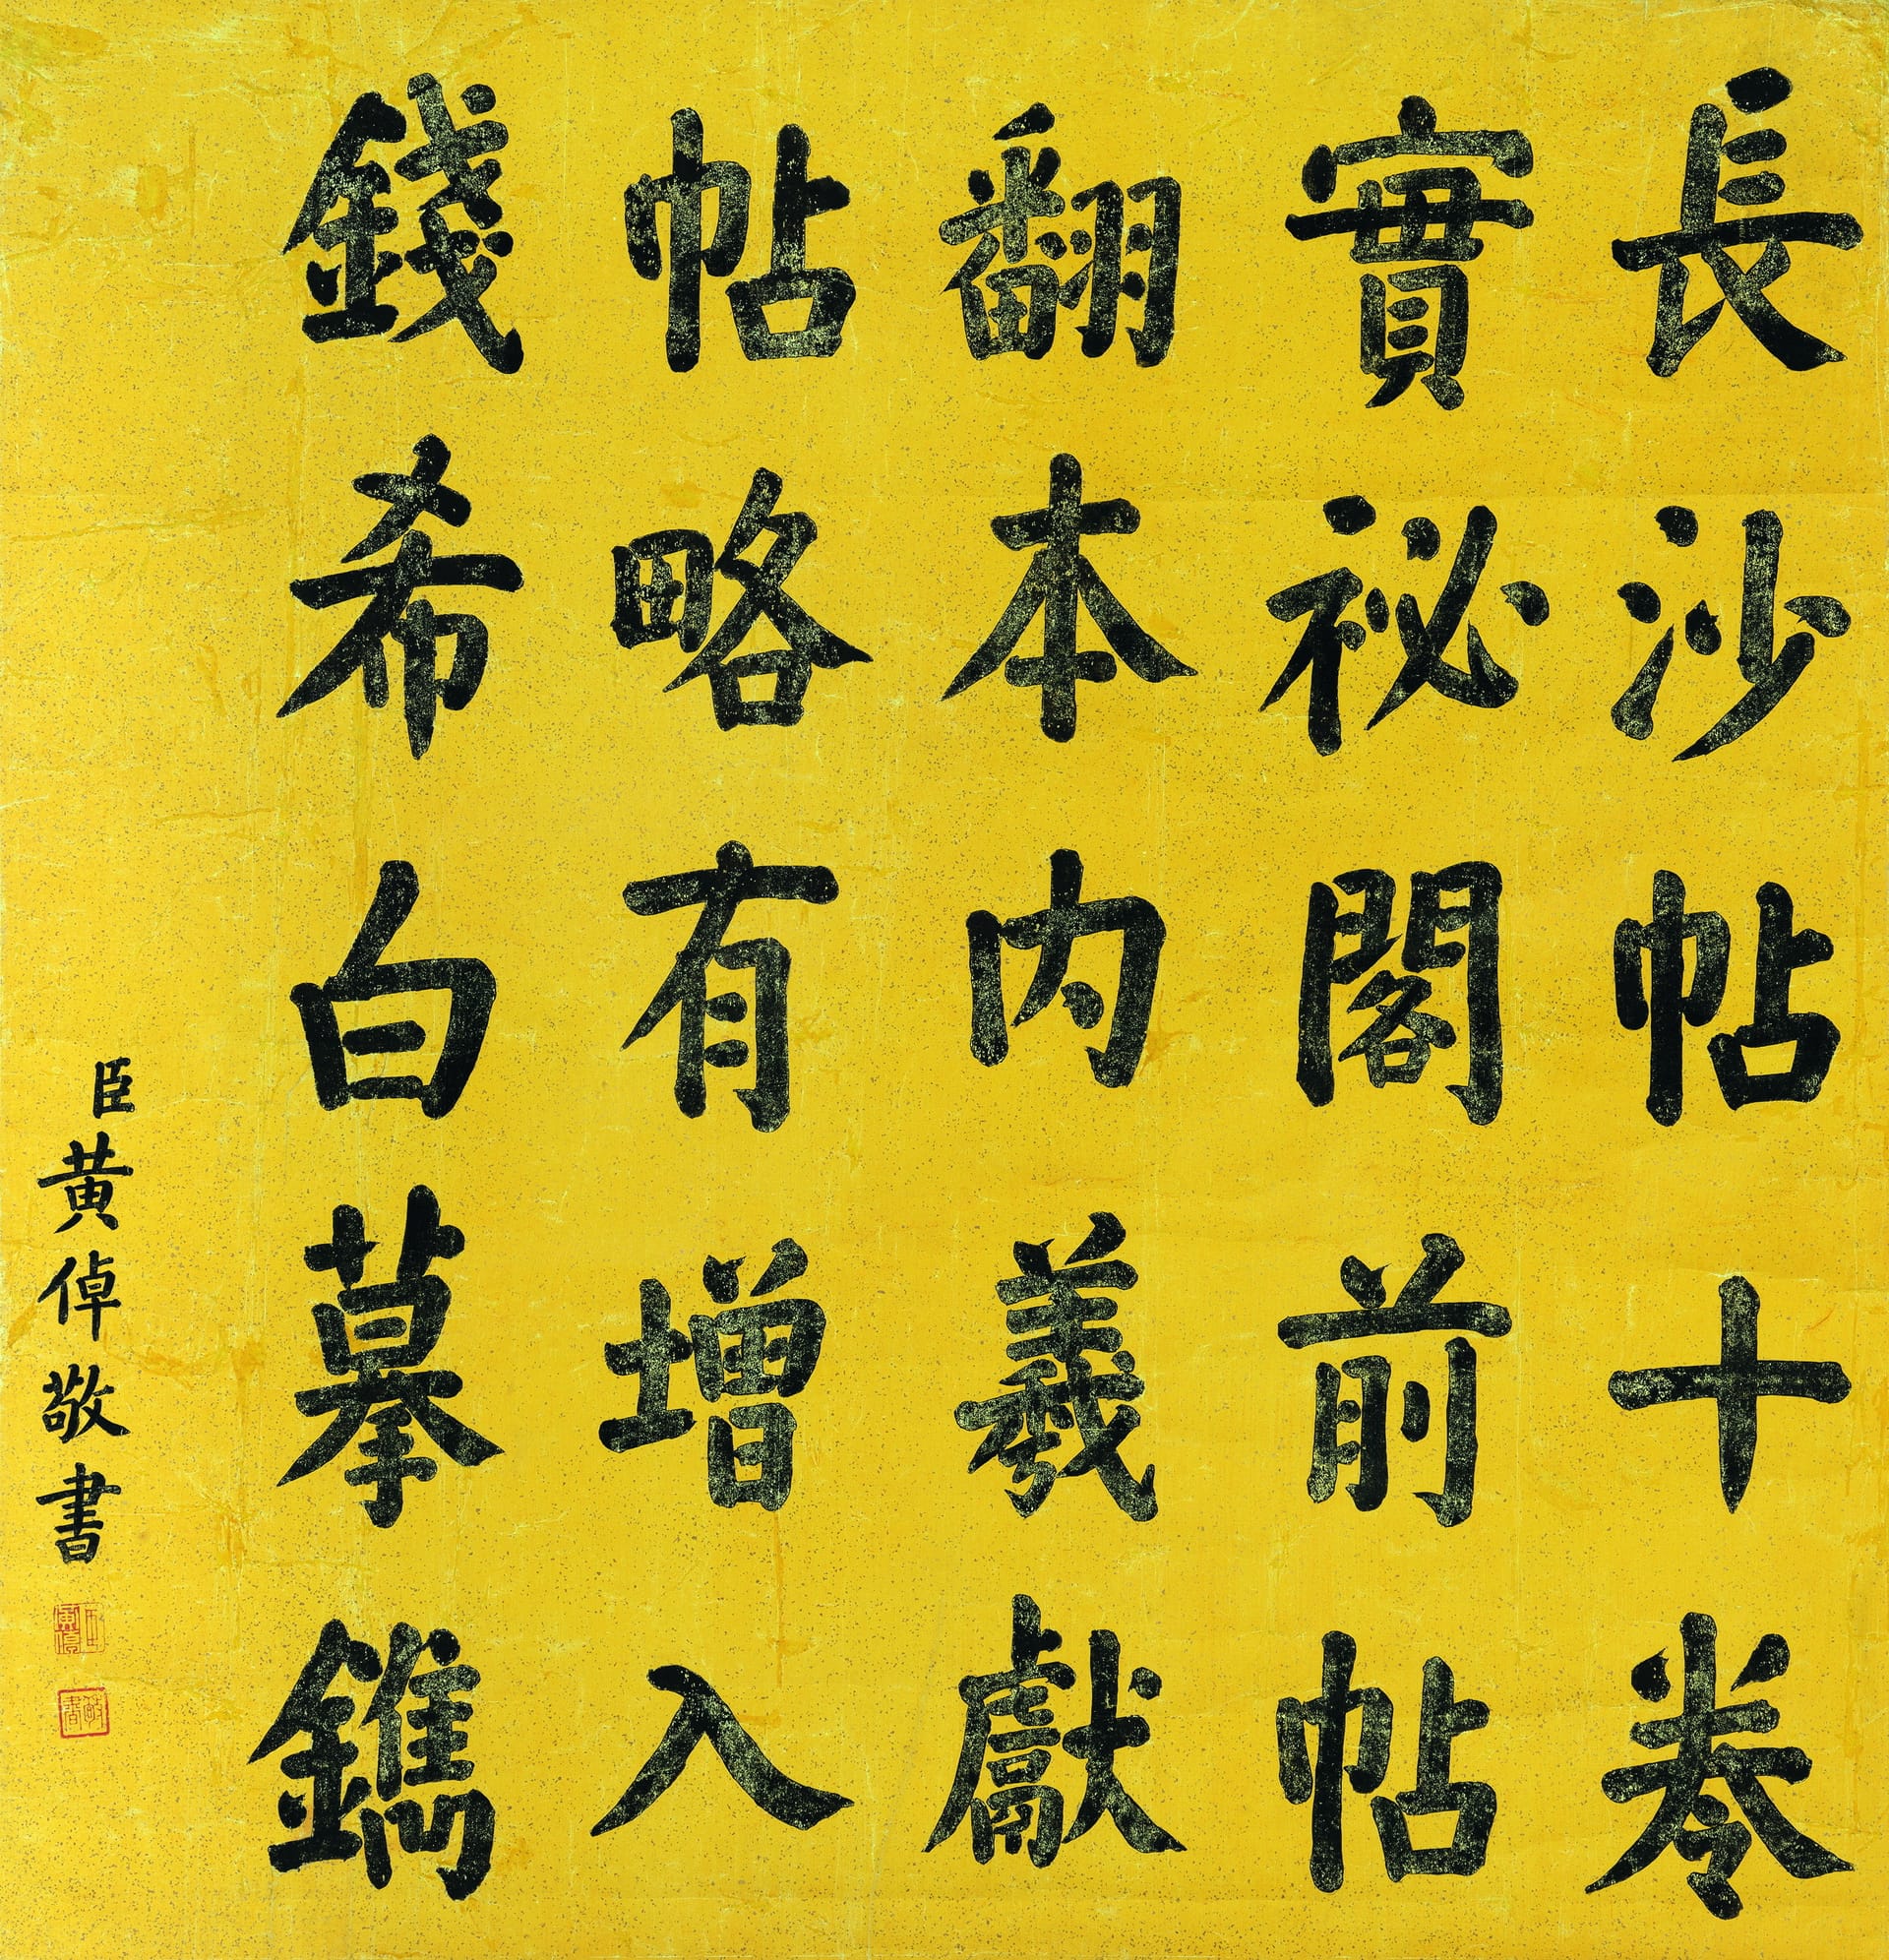 長沙帖十卷
實祕閣前帖
翻本內羲獻
帖略有增入
錢希白摹鐫
臣黃倬敬書
敬書